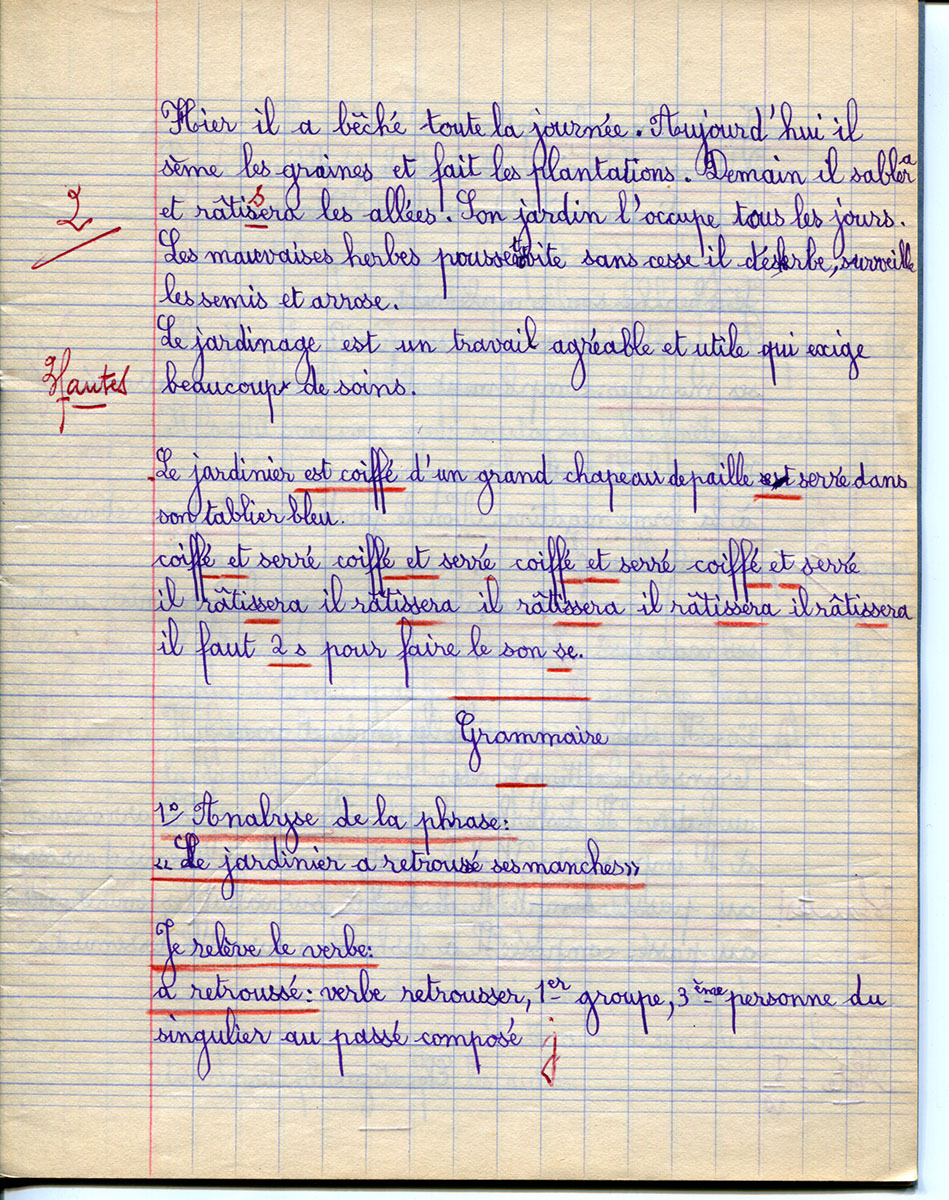 Hier il a bêché toute la journée. Aujourd'hui il
sème les graines et fait les plantations. Demain il sablera
2
et râtissera les allées. Son jardin l'occupe tous les jours.
Les mauvaises herbes poussent vite sans cesse il désherbe, surveille
les semis et arrose.
Le jardinage est un travail agréable et utile qui exige
Hautes
beaucoup de soins.
Le jardinier est coiffé d'un grand chapeau de paille et serré dans
son tablier bleu.
coiffé et serré coiffé et serré coiffé et serré coiffé et serré
il râtissera il râtissera il râtissera il râtissera il râtissera
il faut 2 s pour faire le son se.
Grammaire
1º Analyse de la phrase:
"Le jardinier a retroussé ses manches"
Je relève le verbe:
a retroussé: verbe retrousser, 1er groupe, 3ème personne du
singulier au passé composé